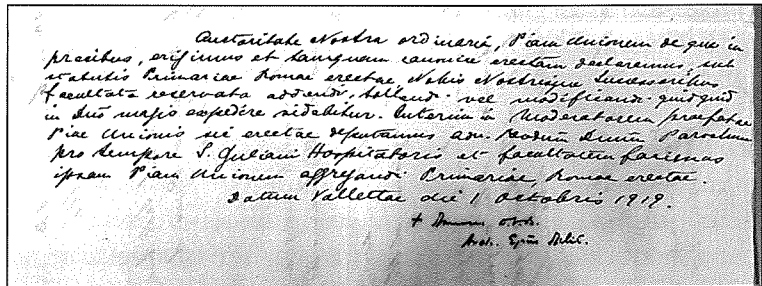 Auctoritate Nostra ordinaria, Piam Unionem de qua in
precibus, erigimus et tamquam canonice erectam declaramus, sub
statutis Primariae Romae erectae Nobis Nostrisque Successoribus
facultate reservata addendi, tollendi vel modificandi quidquid
in Dno magis expedire videbitur. Interim in Moderatorem praefatae
Piae Unionis sic erectae deputamus adm. Rvdum Dnum Parochum
pro tempore S. Juliani Hospitatoris et facultatem facimus
ipsam Piam Unionem aggregandi Primariae, Romae erectae.
Datum Vallettae die 1 Octobris 1919.
+ O.S.B.
Epus